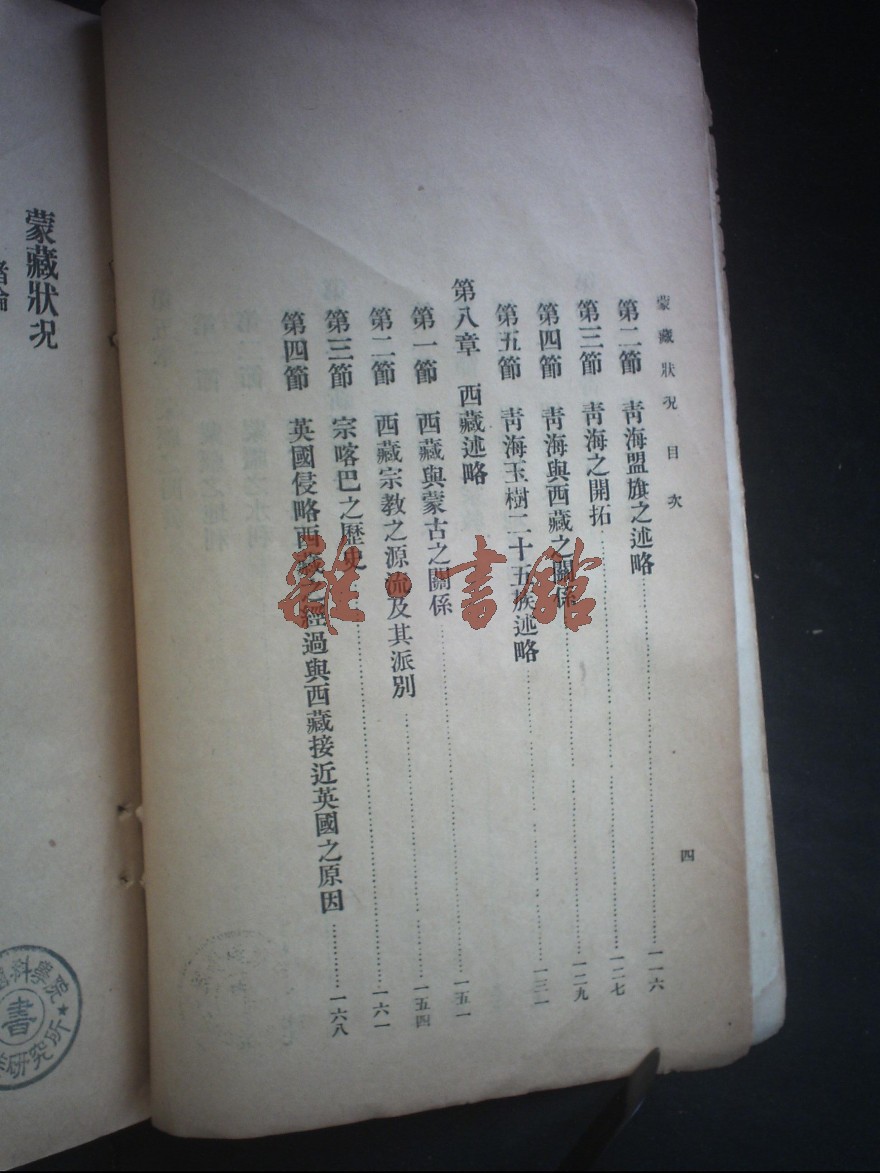 蒙藏狀況 目次 四
第二節 青海盟旗之述略……一一六
第三節 青海之開拓……一二七
第四節 青海與西藏之關係……一二九
第五節 青海玉樹二十五族述略……一三一
第八章 西藏述略
第一節 西藏與蒙古之關係……一五一
第二節 西藏宗教之源流及其派別……一五四
第三節 宗喀巴之歷史……一六一
第四節 英國侵略西藏之經過與西藏接近英國之原因……一六八
蒙藏狀況
雜·書館
國科學院
書
研究所